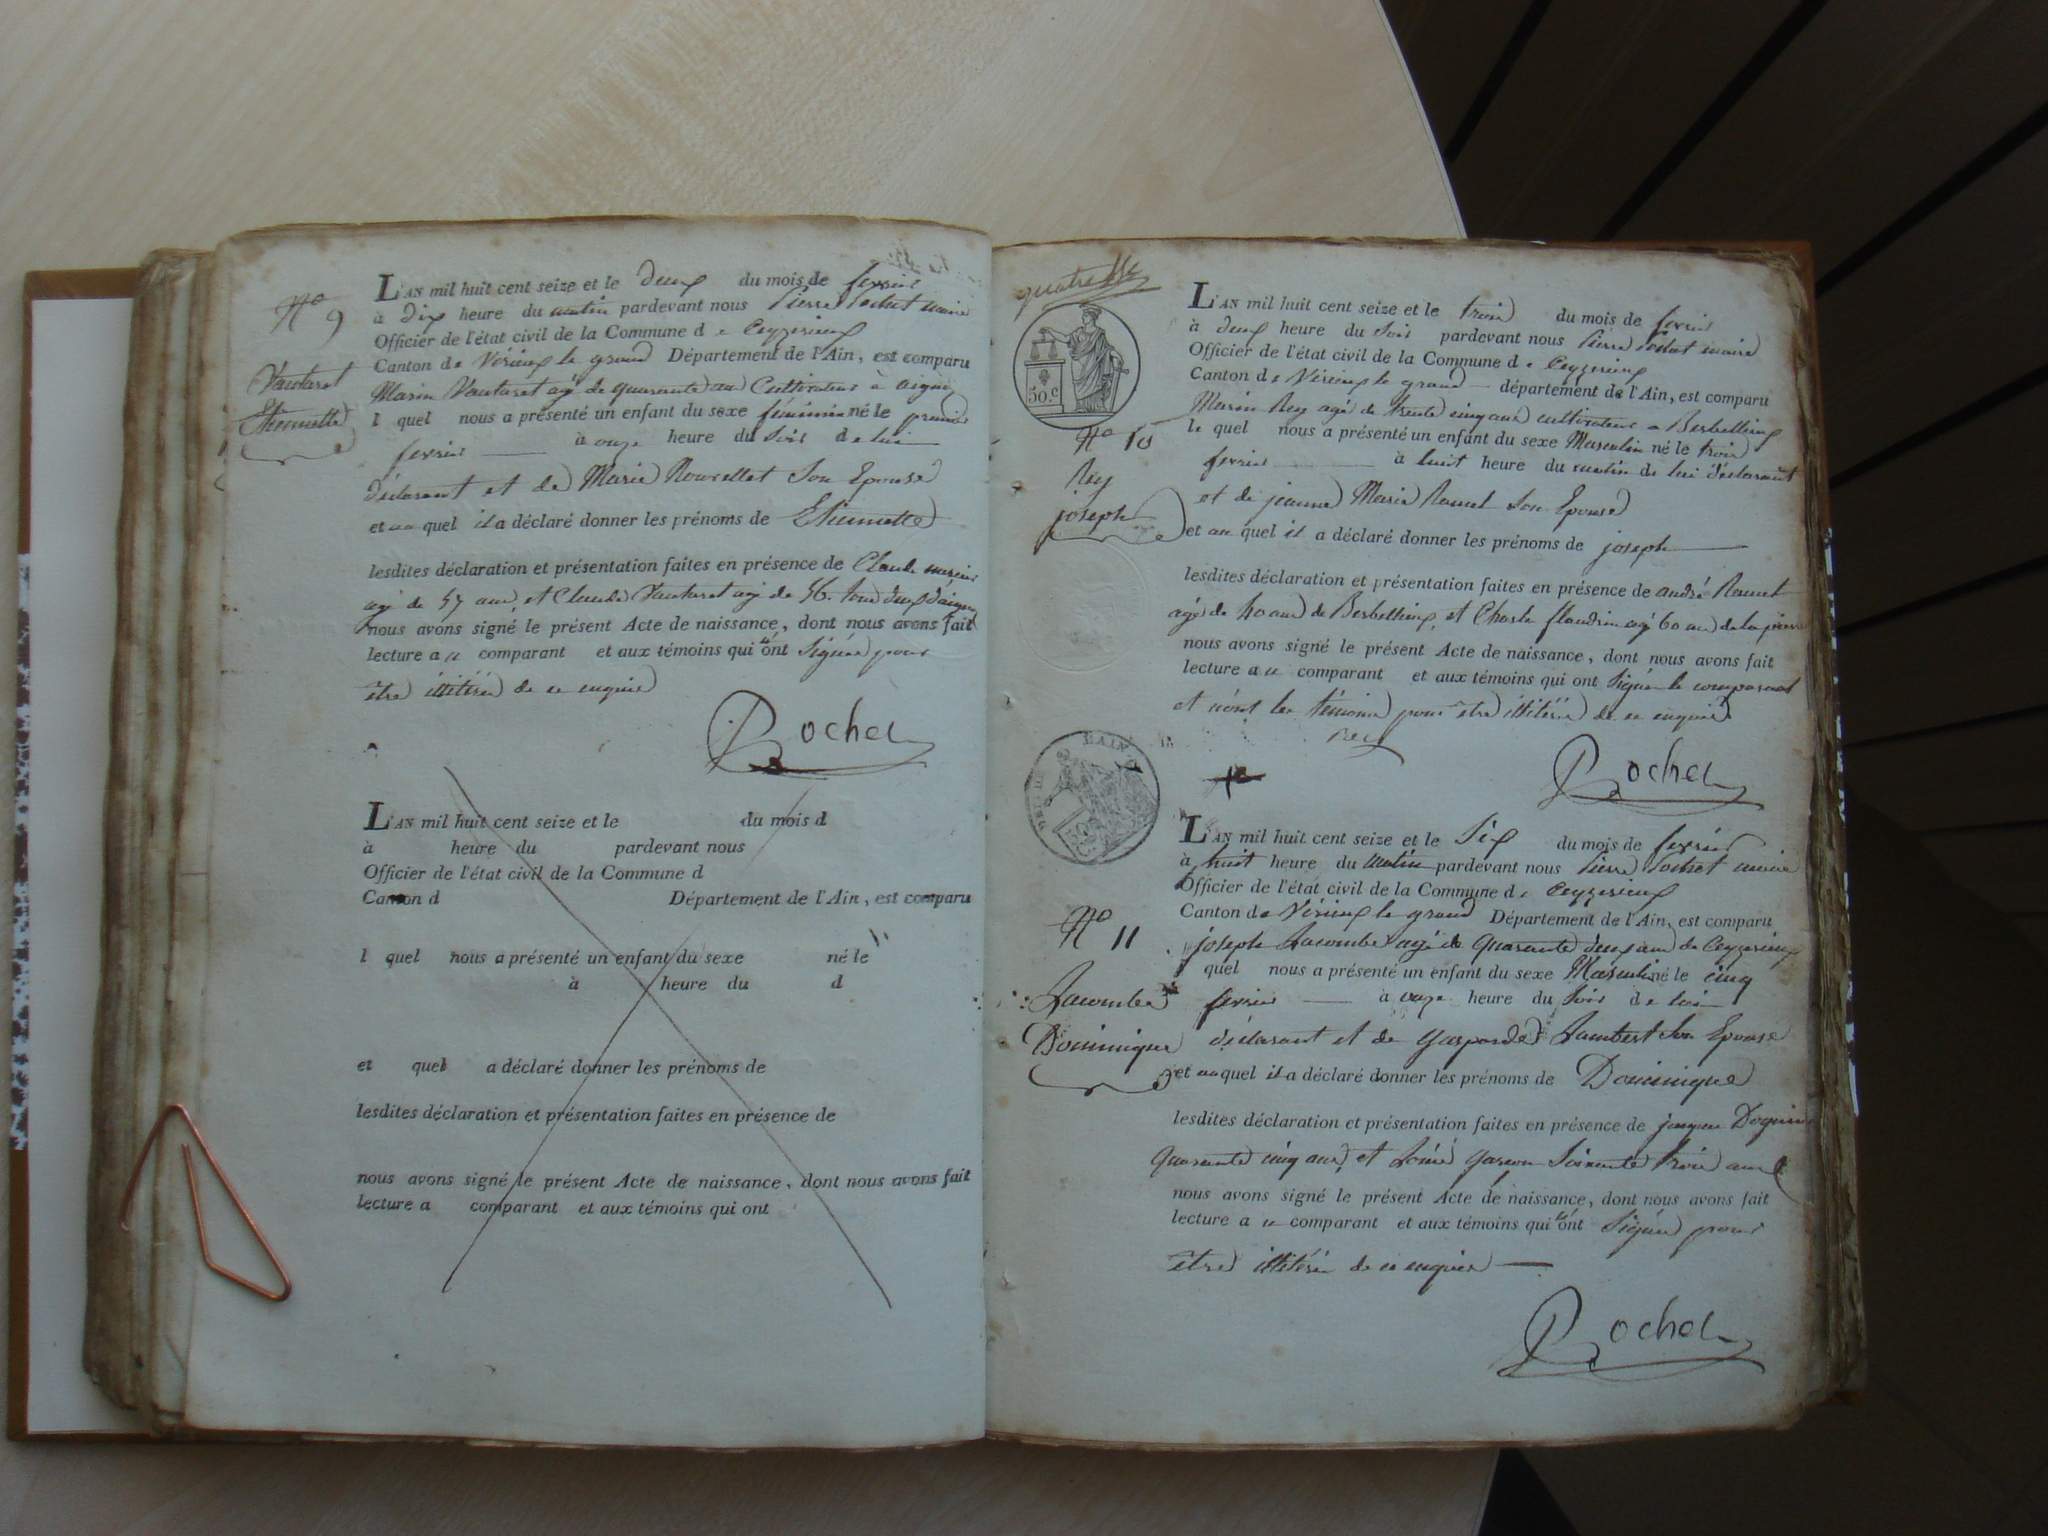 N° 9
Vautaret
Etiennette
L'AN mil huit cent seize et le deux du mois de fevrier
à dix heure du matin pardevant nous Pierre Rochet maire
Officier de l'état civil de la Commune d e Ceyzerieux
Canton de Virieux le grand Département de l'Ain, est comparu
Marin Vautaret agé de quarante ans Cultivateur à aignoz
l quel nous a présenté un enfant du sexe féminin né le premier
fevrier à onze heure du Soir de lui
déclarant et de Marie Son Epouse
et au quel il a déclaré donner les prénoms de Etiennette
lesdites déclaration et présentation faites en présence de Claude
agé de ans, et Claude Vautaret agé de 56. tous deux d'aignoz
nous avons signé le présent Acte de naissance, dont nous avons fait
lecture a u comparant et aux témoins qui n'ont Signés pour
être illitérés de ce enquis
Rochet
L'AN mil huit cent seize et le du mois d
à heure du pardevant nous
Officier de l'état civil de la Commune d
Canton d Département de l'Ain, est comparu
l quel nous a présenté un enfant du sexe né le
à heure du d
et quel a déclaré donner les prénoms de
lesdites déclaration et présentation faites en présence de
nous avons signé le présent Acte de naissance, dont nous avons fait
lecture a comparant et aux témoins qui ont
quatre
50.c
N° 10
Rey
joseph
L'AN mil huit cent seize et le trois du mois de fevrier
à deux heure du Soir pardevant nous Pierre Rochet maire
Officier de l'état civil de la Commune d e Ceyzerieux
Canton de Virieux le grand département de l'Ain, est comparu
Marin Rey agé de trente cinq ans cultivateur a
le quel nous a présenté un enfant du sexe Masculin né le trois
fevrier à huit heure du matin de lui déclarant
et de jeanne Marie Ramet Son Epouse
et au quel il a déclaré donner les prénoms de joseph
lesdites déclaration et présentation faites en présence de andré Ramet
agé de 40 ans de et Charle flandrin agé 60 ans de la
nous avons signé le présent Acte de naissance, dont nous avons fait
lecture a u comparant et aux témoins qui ont Signés le comparant
et n'ont les témoins pour être illitérés de ce enquis
Rey
Rochet
N° 11
Lacombe
Dominique
L'AN mil huit cent seize et le Six du mois de fevrier
à huit heure du matin pardevant nous Pierre Rochet maire
Officier de l'état civil de la Commune d e Ceyzerieux
Canton de Virieux le grand Département de l'Ain, est comparu
joseph Lacombe agé de quarante deux ans de Ceyzerieux
quel nous a présenté un enfant du sexe Masculin né le cinq
fevrier à onze heure du Soir de lui
déclarant et de Gasparde Lambert Son Epouse
et au quel il a déclaré donner les prénoms de Dominique
lesdites déclaration et présentation faites en présence de
quarante cinq ans, et Soixante trois ans
nous avons signé le présent Acte de naissance, dont nous avons fait
lecture a u comparant et aux témoins qui n'ont Signés pour
être illitérés de ce enquis
Rochet